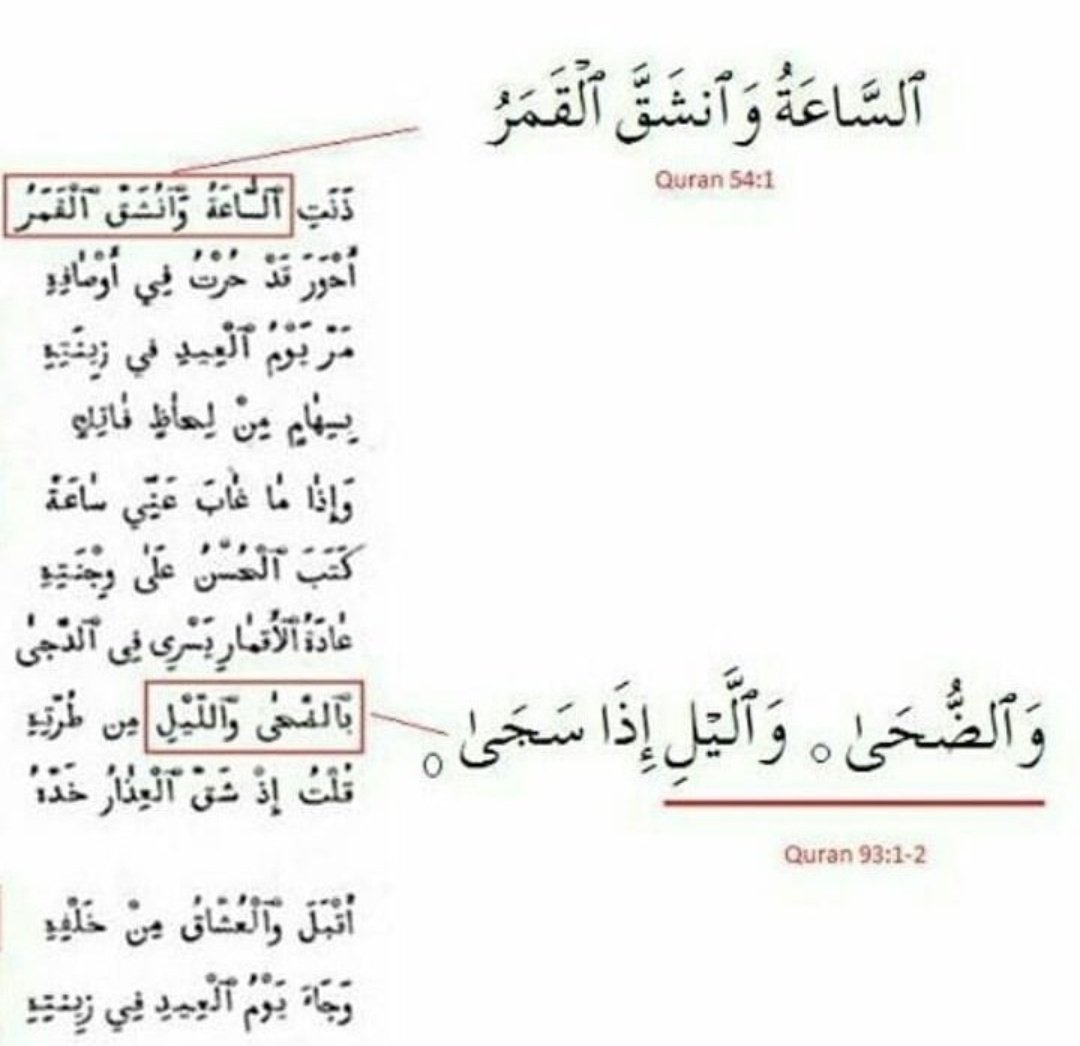 ٱلسَّاعَةُ وَٱنشَقَّ ٱلْقَمَرُ
Quran 54:1
دَنَتِ ٱلسَّاعَةُ وَٱنْشَقَّ ٱلْقَمَرُ
أَحْوَرَ قَدْ حُرْتُ فِي أَوْصَافِهِ
مَرَّ يَوْمُ ٱلْعِيدِ فِي زِينَتِهِ
بِسِهَامٍ مِنْ لِحَاظٍ فَاتِكٍ
وَإِذَا مَا غَابَ عَنِّي سَاعَةً
كَتَبَ ٱلْحُسْنُ عَلَى وِجْنَتِهِ
عَادَةُ ٱلْأَقْمَارِ يَسْرِي فِي ٱلدُّجَىٰ
بِٱلضُّحَىٰ وَٱللَّيْلِ مِن طُرَّتِهِ
وَٱلضُّحَىٰ ۝ وَٱلَّيْلِ إِذَا سَجَىٰ ۝
قُلْتُ إِذْ شَقَّ ٱلْعِذَارُ خَدَّهُ
Quran 93:1-2
أَقْبَلَ وَٱلْعُشَّاقُ مِنْ خَلْفِهِ
وَجَاءَ يَوْمُ ٱلْعِيدِ فِي زِينَتِهِ